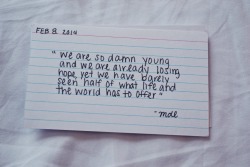 FEB. 8. 2014
" we are so damn young
and we are already losing
hope, yet we have barely
seen half of what life and
the world has to offer "
- mdl